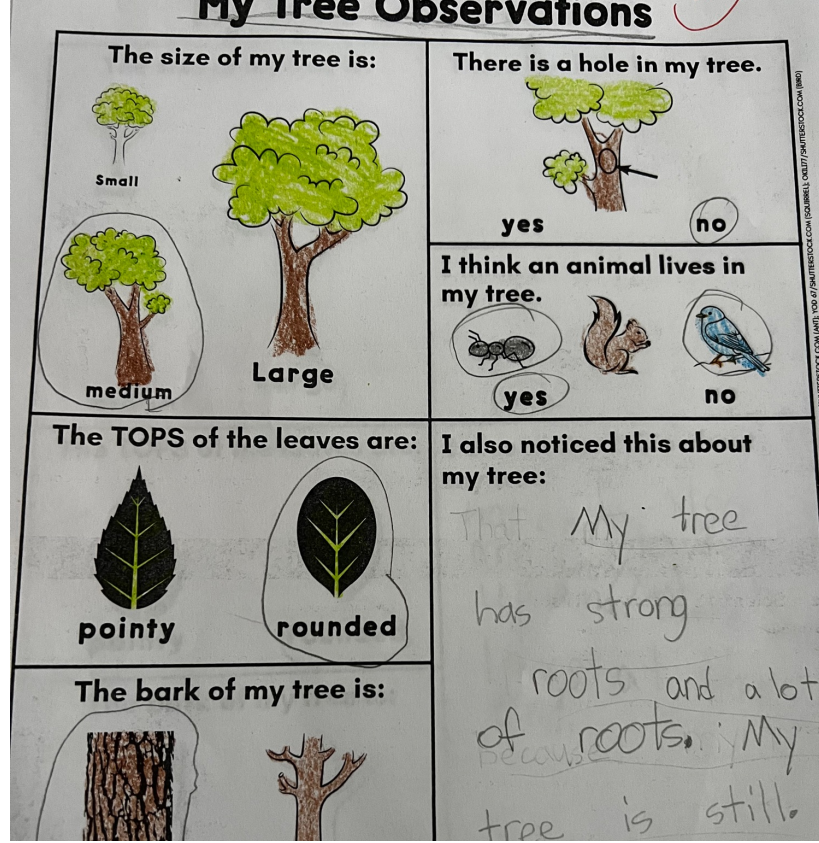 My Tree Observations
The size of my tree is:
Small
medium
Large
There is a hole in my tree.
yes no
I think an animal lives in
my tree.
yes no
The TOPS of the leaves are:
pointy rounded
The bark of my tree is:
I also noticed this about
my tree:
That My tree
has strong
roots and a lot
of roots. My
because
tree is still.
SHUTTERSTOCK.COM (ANT); YOD 67/SHUTTERSTOCK.COM (SQUIRREL); OKILI77/SHUTTERSTOCK.COM (BIRD)